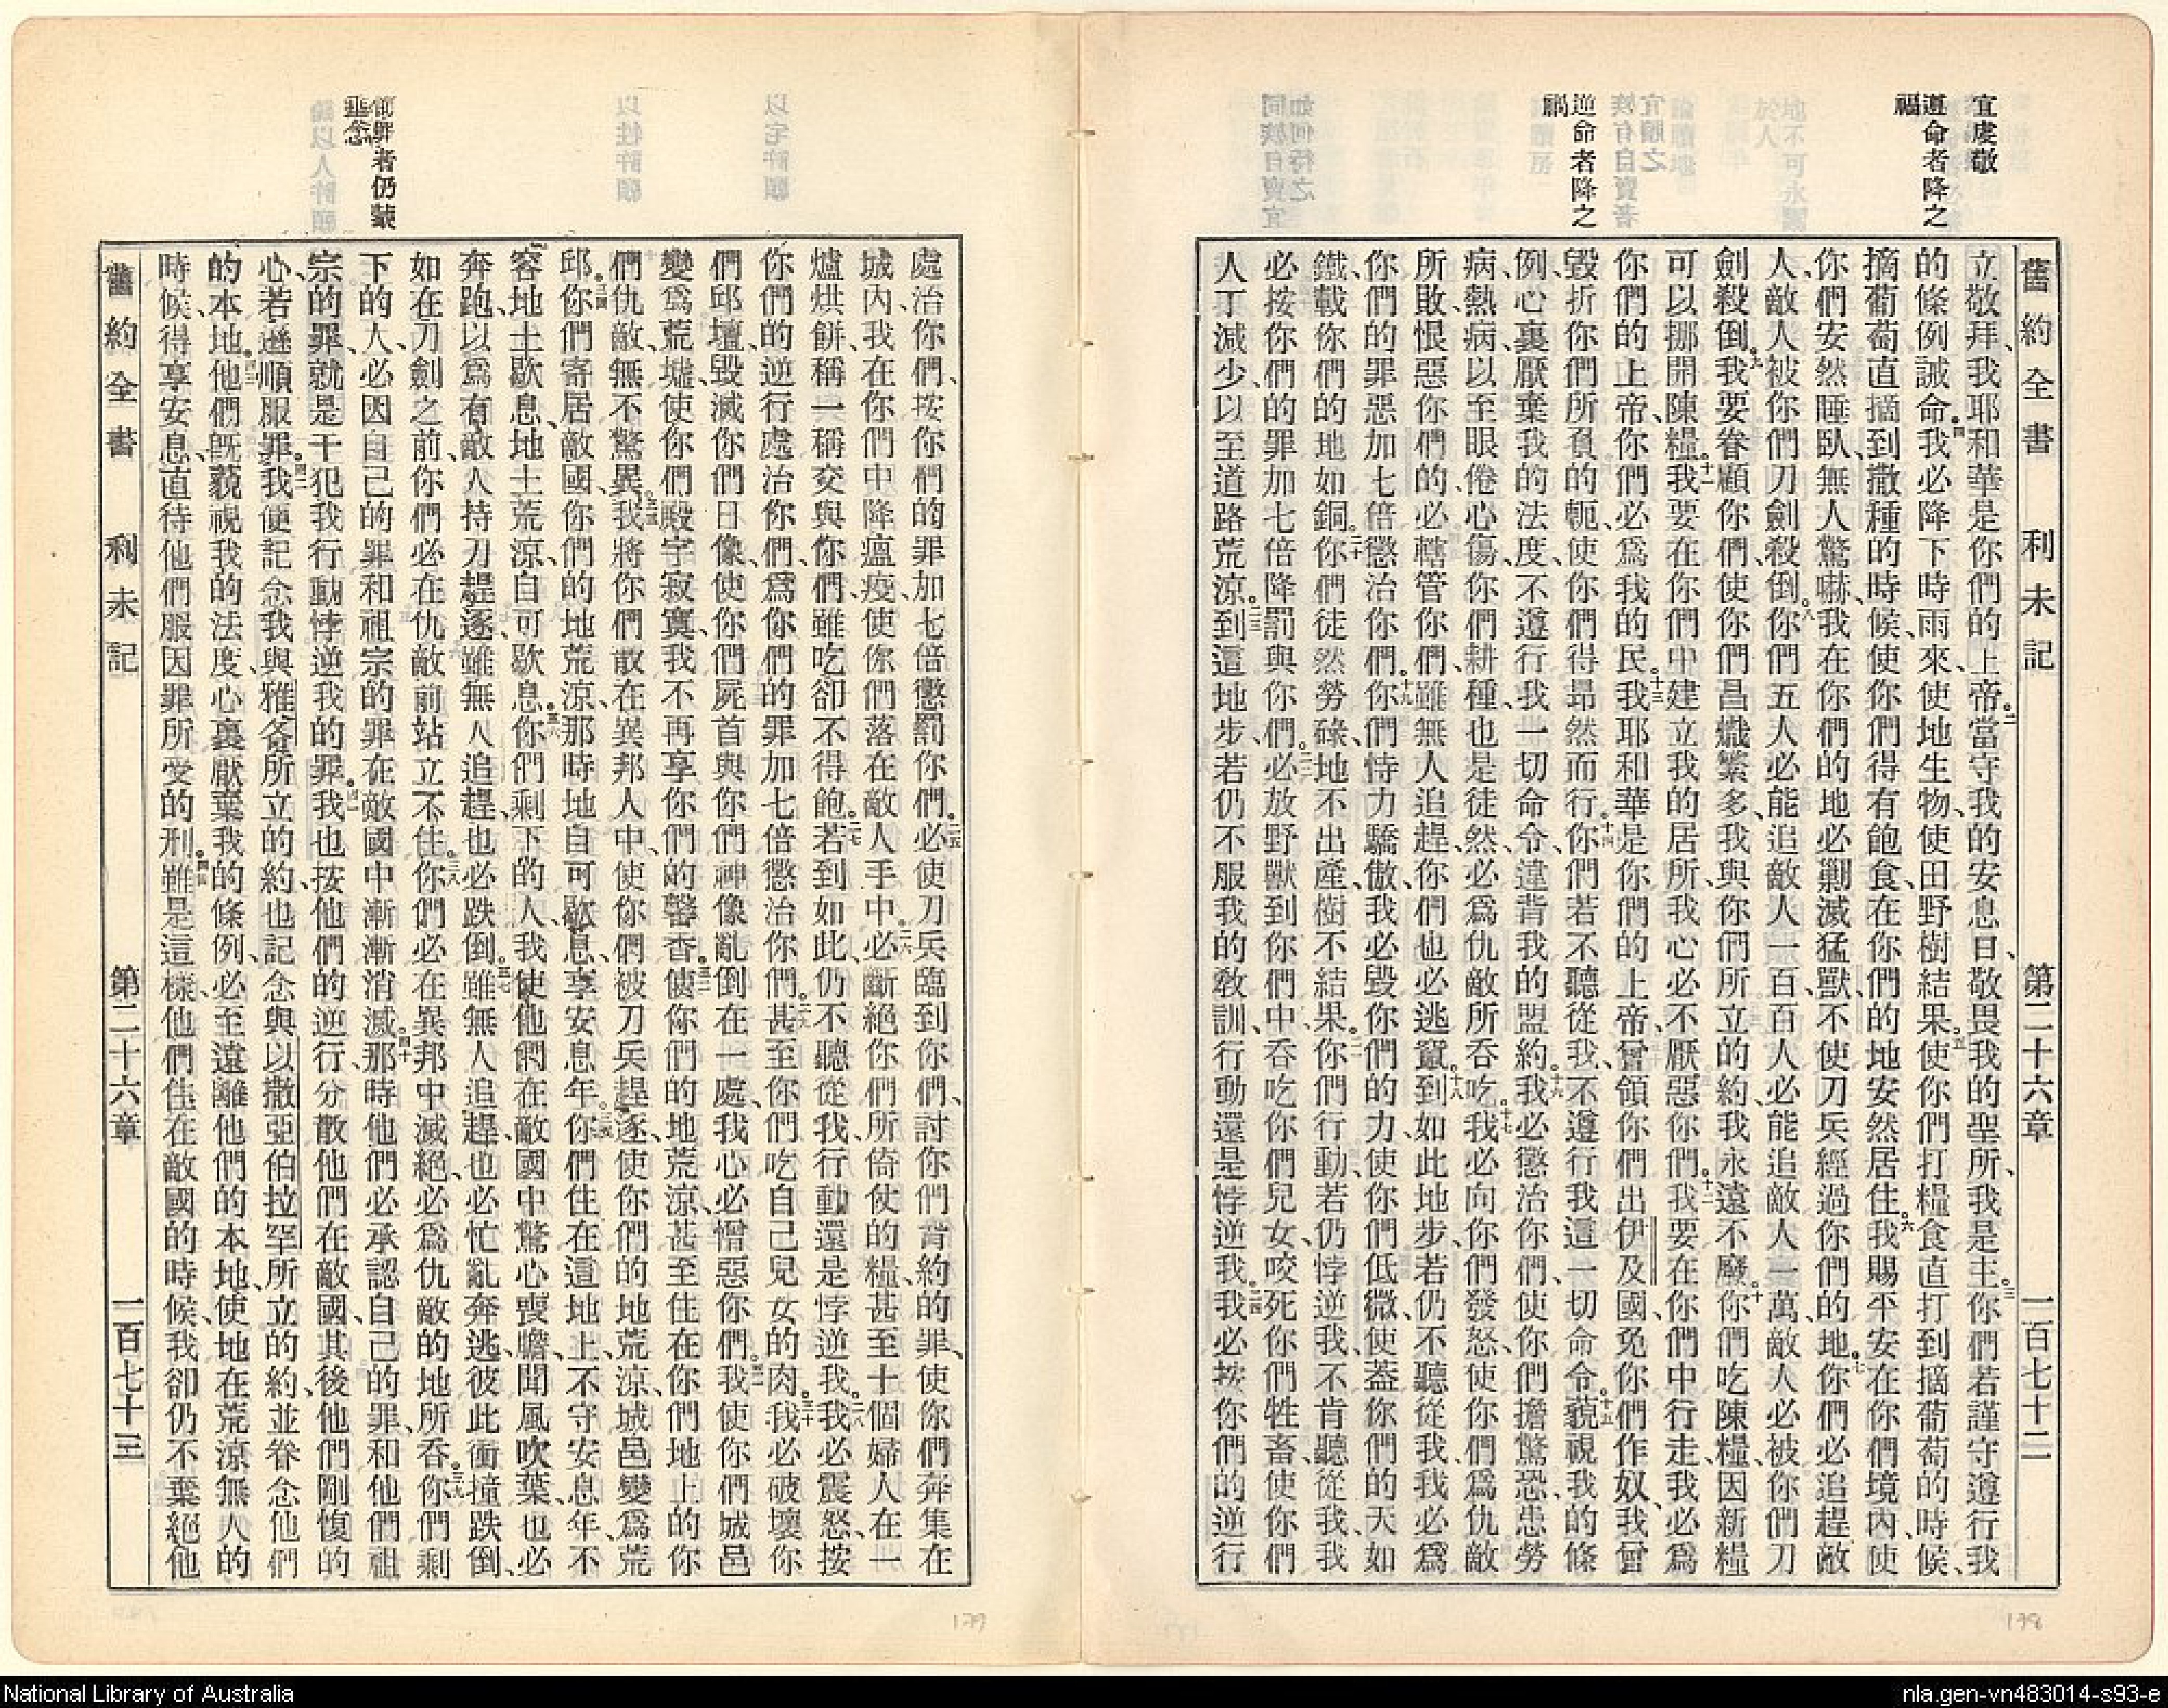 宜虔敬
遵命者降之
福
逆命者降之
禍
舊約全書 利未記 第二十六章 一百七十二
立敬拜、我耶和華是你們的上帝。二當守我的安息日、敬畏我的聖所、我是主。三你們若謹守遵行我
的條例誡命、四我必降下時雨來、使地生物、使田野樹結果。五使你們打糧食直打到摘葡萄的時候、
摘葡萄直摘到撒種的時候、使你們得有飽食、在你們的地安然居住。六我賜平安在你們境內、使
你們安然睡臥、無人驚嚇、我在你們的地必剿滅猛獸、不使刀兵經過你們的地。七你們必追趕敵
人、敵人被你們刀劍殺倒。八你們五人必能追敵人一百、百人必能追敵人一萬、敵人必被你們刀
劍殺倒。九我要眷顧你們、使你們昌熾繁多、我與你們所立的約、我永遠不廢。十你們吃陳糧、因新糧
可以挪開陳糧。十一我要在你們中建立我的居所、我心必不厭惡你們。十二我要在你們中行走、我必爲
你們的上帝、你們必爲我的民。十三我耶和華是你們的上帝、曾領你們出伊及國、免你們作奴、我曾
毀折你們所負的軛、使你們得昂然而行。十四你們若不聽從我、不遵行我這一切命令、十五藐視我的條
例、心裏厭棄我的法度、不遵行我一切命令、違背我的盟約。十六我必懲治你們、使你們擔驚恐、患勞
病、熱病、以至眼倦心傷、你們耕種也是徒然、必爲仇敵所吞吃。十七我必向你們發怒、使你們爲仇敵
所敗、恨惡你們的、必轄管你們、雖無人追趕、你們也必逃竄。十八到如此地步、若仍不聽從我、我必爲
你們的罪惡加七倍懲治你們。十九你們恃力驕傲、我必毀你們的力、使你們低微、使蓋你們的天如
鐵、載你們的地如銅。二十你們徒然勞碌、地不出產、樹不結果。二一你們行動、若仍悖逆我、不肯聽從我、我
必按你們的罪加七倍降罰與你們。二二必放野獸到你們中、吞吃你們兒女、咬死你們牲畜、使你們
人丁減少、以至道路荒涼。二三到這地步、若仍不服我的敎訓、行動還是悖逆我。二四我必按你們的逆行
178
前辟者仍蒙
垂念
處治你們、按你們的罪加七倍懲罰你們。二五必使刀兵臨到你們、討你們背約的罪、使你們奔集在
城內、我在你們中降瘟疫、使你們落在敵人手中。二六必斷絕你們所倚使的糧、甚至十個婦人在一
爐烘餅、稱一稱交與你們、雖吃卻不得飽。二七若到如此、仍不聽從我、行動還是悖逆我。二八我必震怒、按
你們的逆行處治你們、爲你們的罪加七倍懲治你們。二九甚至你們吃自己兒女的肉。三十我必破壞你
們邱壇、毀滅你們日像、使你們屍首與你們神像亂倒在一處、我心必憎惡你們。三一我使你們城邑
變爲荒墟、使你們殿宇寂寞、我不再享你們的馨香。三二使你們的地荒涼、甚至住在你們地上的你
們仇敵、無不驚異。三三我將你們散在異邦人中、使你們被刀兵趕逐、使你們的地荒涼、城邑變爲荒
邱。三四你們寄居敵國、你們的地荒涼、那時地自可歇息、享安息年。三五你們住在這地上、不守安息年、不
容地土歇息、地土荒涼、自可歇息。三六你們剩下的人、我使他們在敵國中驚心喪膽、聞風吹葉、也必
奔跑、以爲有敵人持刀趕逐、雖無人追趕、也必跌倒。三七雖無人追趕、也必忙亂奔逃、彼此衝撞跌倒、
如在刀劍之前、你們必在仇敵前站立不住。三八你們必在異邦中滅絕、必爲仇敵的地所吞。三九你們剩
下的人、必因自己的罪和祖宗的罪、在敵國中漸漸消滅。四十那時他們必承認自己的罪、和他們祖
宗的罪、就是干犯我行動悖逆我的罪。四一我也按他們的逆行、分散他們在敵國、其後他們剛愎的
心、若遜順服罪。四二我便記念我與雅各所立的約、也記念與以撒亞伯拉罕所立的約、並眷念他們
的本地。四三他們旣藐視我的法度、心裏厭棄我的條例、必至遠離他們的本地、使地在荒涼無人的
時候、得享安息、直待他們服因罪所受的刑。四四雖是這樣、他們住在敵國的時候、我卻仍不棄絕他
舊約全書 利未記 第二十六章 一百七十三
179
National Library of Australia
nla.gen-vn483014-s93-e